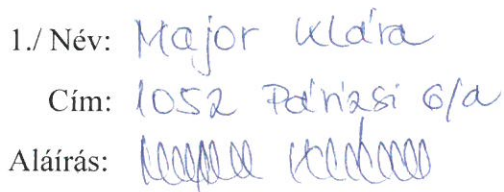 1./ Név: Major Klára
Cím: 1052 Párizsi 6/a
Aláírás: